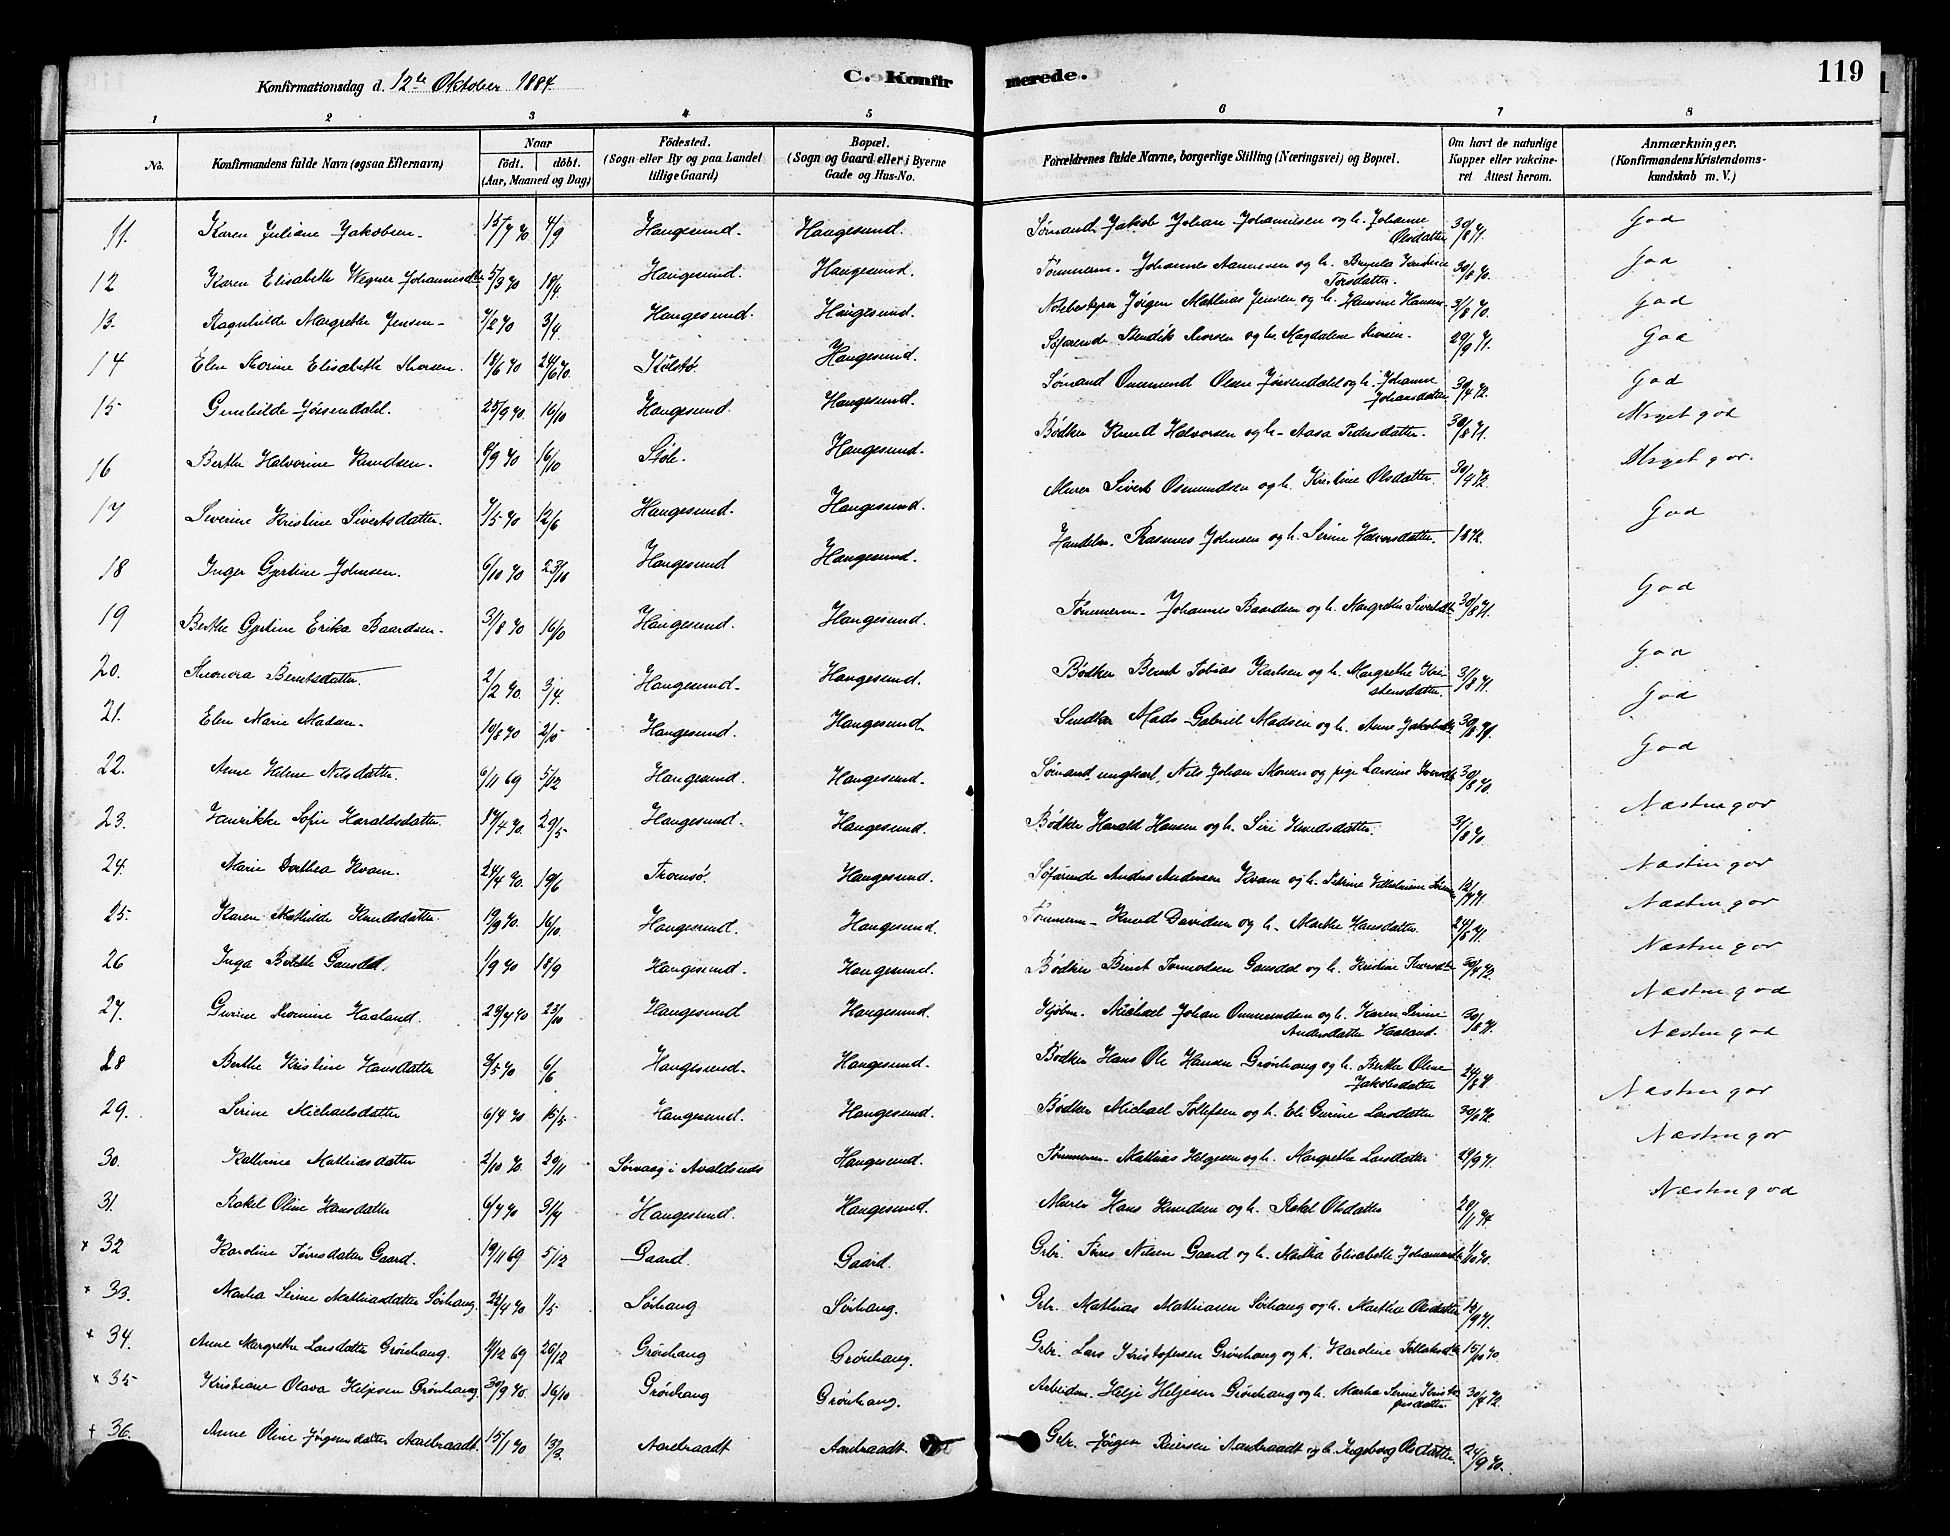 Konfirmationsdag d. 12te Oktober 1884.
C. Konfir
merede.
119
1 2 3 4 5 6 7 8
No. Konfirmandens fulde Navn (ogsaa Efternavn) Naar födt. döbt. (Aar, Maaned og Dag) Födested. (Sogn eller By og paa Landet tillige Gaard) Bopæl. (Sogn og Gaard eller i Byerne Gade og Hus-No. Forældrenes fulde Navne, borgerlige Stilling (Næringsvei) og Bopæl. Om havt de naturlige Kopper eller vakcineret Attest herom. Anmærkninger. (Konfirmandens Kristendomskundskab m. V.)
11. Karen Juliane Jakobsen. 15/7 70 4/9 Haugesund. Haugesund. Sømand Jakob Johan Johannesen og h. Johanne Olsdatter 30/8 71. God
12 Karen Elisabeth Wegner Johannesdtr 5/3 70 18/4 Haugesund. Haugesund. Tømmerm. Johannes Aanensen og h. Torsdatter. 30/8 70. God
13. Ragnhilde Margrethe Jensen 7/2 70 3/4 Haugesund. Haugesund. Jørgen Mathias Jensen og h. Hansine Hansen 3/8 70. God
14 Elen Thorine Elisabeth Thorsen. 18/6 70 24/6 70. Haugesund. Søfarende Bendik Thorsen og h. Magdalene Thorsen. 29/9 71. God
15 Gunhilde Jørsendahl. 25/9 70. 16/10 Haugesund. Haugesund. Sømand Ommund Olsen Jørsendahl og h. Johanne Johansdatter 30/4 72. God
16 Berthe Halvorine Knudsen. 8/9 70 16/10 Støle. Haugesund. Bødker Knud Halvorsen og h. Aasa Pedersdatter. 30/8 71. Meget god
17 Severine Kristine Sivertsdatter. 7/5 70 12/6 Haugesund. Haugesund. Murer Sivert Osmundsen og h. Kristine Olsdatter. 30/9 72. Meget god.
18 Inger Gjertine Johnsen. 6/10 70 23/10 Haugesund Haugesund. Handelsm. Rasmus Johnsen og h. Serine Halvorsdatter. 1872. God
19 Berthe Gjertine Erika Baardsen. 31/8 70 16/10 Haugesund. Haugesund. Tømmerm. Johannes Baardsen og h. Margrethe Sivertsdtr 30/8 71. God
20. Theodora Berntsdatter. 2/2 70. 3/4 Haugesund. Haugesund. Bødker Bernt Tobias Karlsen og h. Margrethe Kristensdatter. 31/8 71. God
21. Elen Marie Madsen. 19/8 70 2/10 Haugesund. Haugesund. Snedker Mads Gabriel Madsen og h. Anne Jakobsdtr 30/8 71. God
22. Anne Helene Nilsdatter. 6/11 69 5/12 Haugesund. Haugesund. Sømand, ungkarl, Nils Johan Monsen og pige Larsine 30/8 70. God
23. Henrikke Sofie Haraldsdatter. 17/4 70. 29/5 Haugesund. Haugesund. Bødker Harald Hansen og h. Siri Knudsdatter. 31/8 70. Næsten god
24. Marie Dorthea Kvam. 24/4 70. 19/6 Tromsö. Haugesund. Søfarende Anders Andersen Kvam og h. Petrine Vilhelmine 12/7 71. Næsten god
25 Karen Mathilde Knudsdatter. 19/9 70. 16/10 Haugesund. Haugesund. Tømmerm. Knud Davidsen og h. Marthe Hansdatter. 24/8 71. Næsten god
26 Inga Berthe Gausdal. 1/9 70 18/9 Haugesund. Haugesund. Bødker Bernt Tormodsen Gausdal og h. Kristine Thorsdtr 30/4 72. Næsten god
27. Gurine Thomine Haaland. 23/9 70 23/10 Haugesund Haugesund. Kjøbm. Michael Johan Ommundsen og h. Karen Serine Andersdatter Haaland. 30/8 71. Næsten god
28 Berthe Kristine Hansdatter 9/5 70 6/6 Haugesund. Haugesund. Bødker Hans Ole Hansen Grønhaug og h. Berthe Oline Jakobsdatter 24/8 71. Næsten god
29. Serine Michaelsdatter 6/4 70 15/5 Haugesund. Haugesund. Bødker Michael Tollefsen og h. Eli Gurine Larsdatter 30/6 72. Næsten god
30. Kathrine Mathiasdatter 2/10 70. 20/11 Sørvaag i Avaldsnes Haugesund. Tømmerm. Mathias Helgesen og h. Margrethe Larsdatter 29/9 71. Næsten god
31. Rakel Oline Hansdatter 6/7 70 31/7 Haugesund. Haugesund. Murer Hans Knudsen og h. Rakel Olsdatter 20/11 74. Næsten god
× 32 Karoline Tørresdatter Gaard. 19/11 69 5/12 Gaard. Gaard. Grbr. Tørres Nilsen Gaard og h. Martha Elisabeth Johannesdtr 1/10 70.
× 33. Martha Serine Mathiasdatter Sørhaug. 22/4 70 1/5 Sørhaug Sørhaug. Grbr. Mathias Mathiasen Sørhaug og h. Martha Olsdatter 14/9 71.
× 34. Anne Margrethe Larsdatter Grønhaug. 9/12 69 26/12 Grønhaug Grønhaug. Grbr. Lars Kristofersen Grønhaug og h. Karoline 15/10 70
× 35 Kristiane Olava Helgesen Grønhaug. 30/9 70. 16/10 Grønhaug Grønhaug. Arbeidsm. Helje Heljesen Grønhaug og h. Martha Serine Kristofersdatter 30/4 72.
× 36. Anne Oline Jørgensdatter Aarebraadt. 15/1 70 13/3 Aarebraadt Aarebraadt. Grbr. Jørgen Reiersen Aarebraadt og h. Ingeborg Olsdatter. 24/9 70.